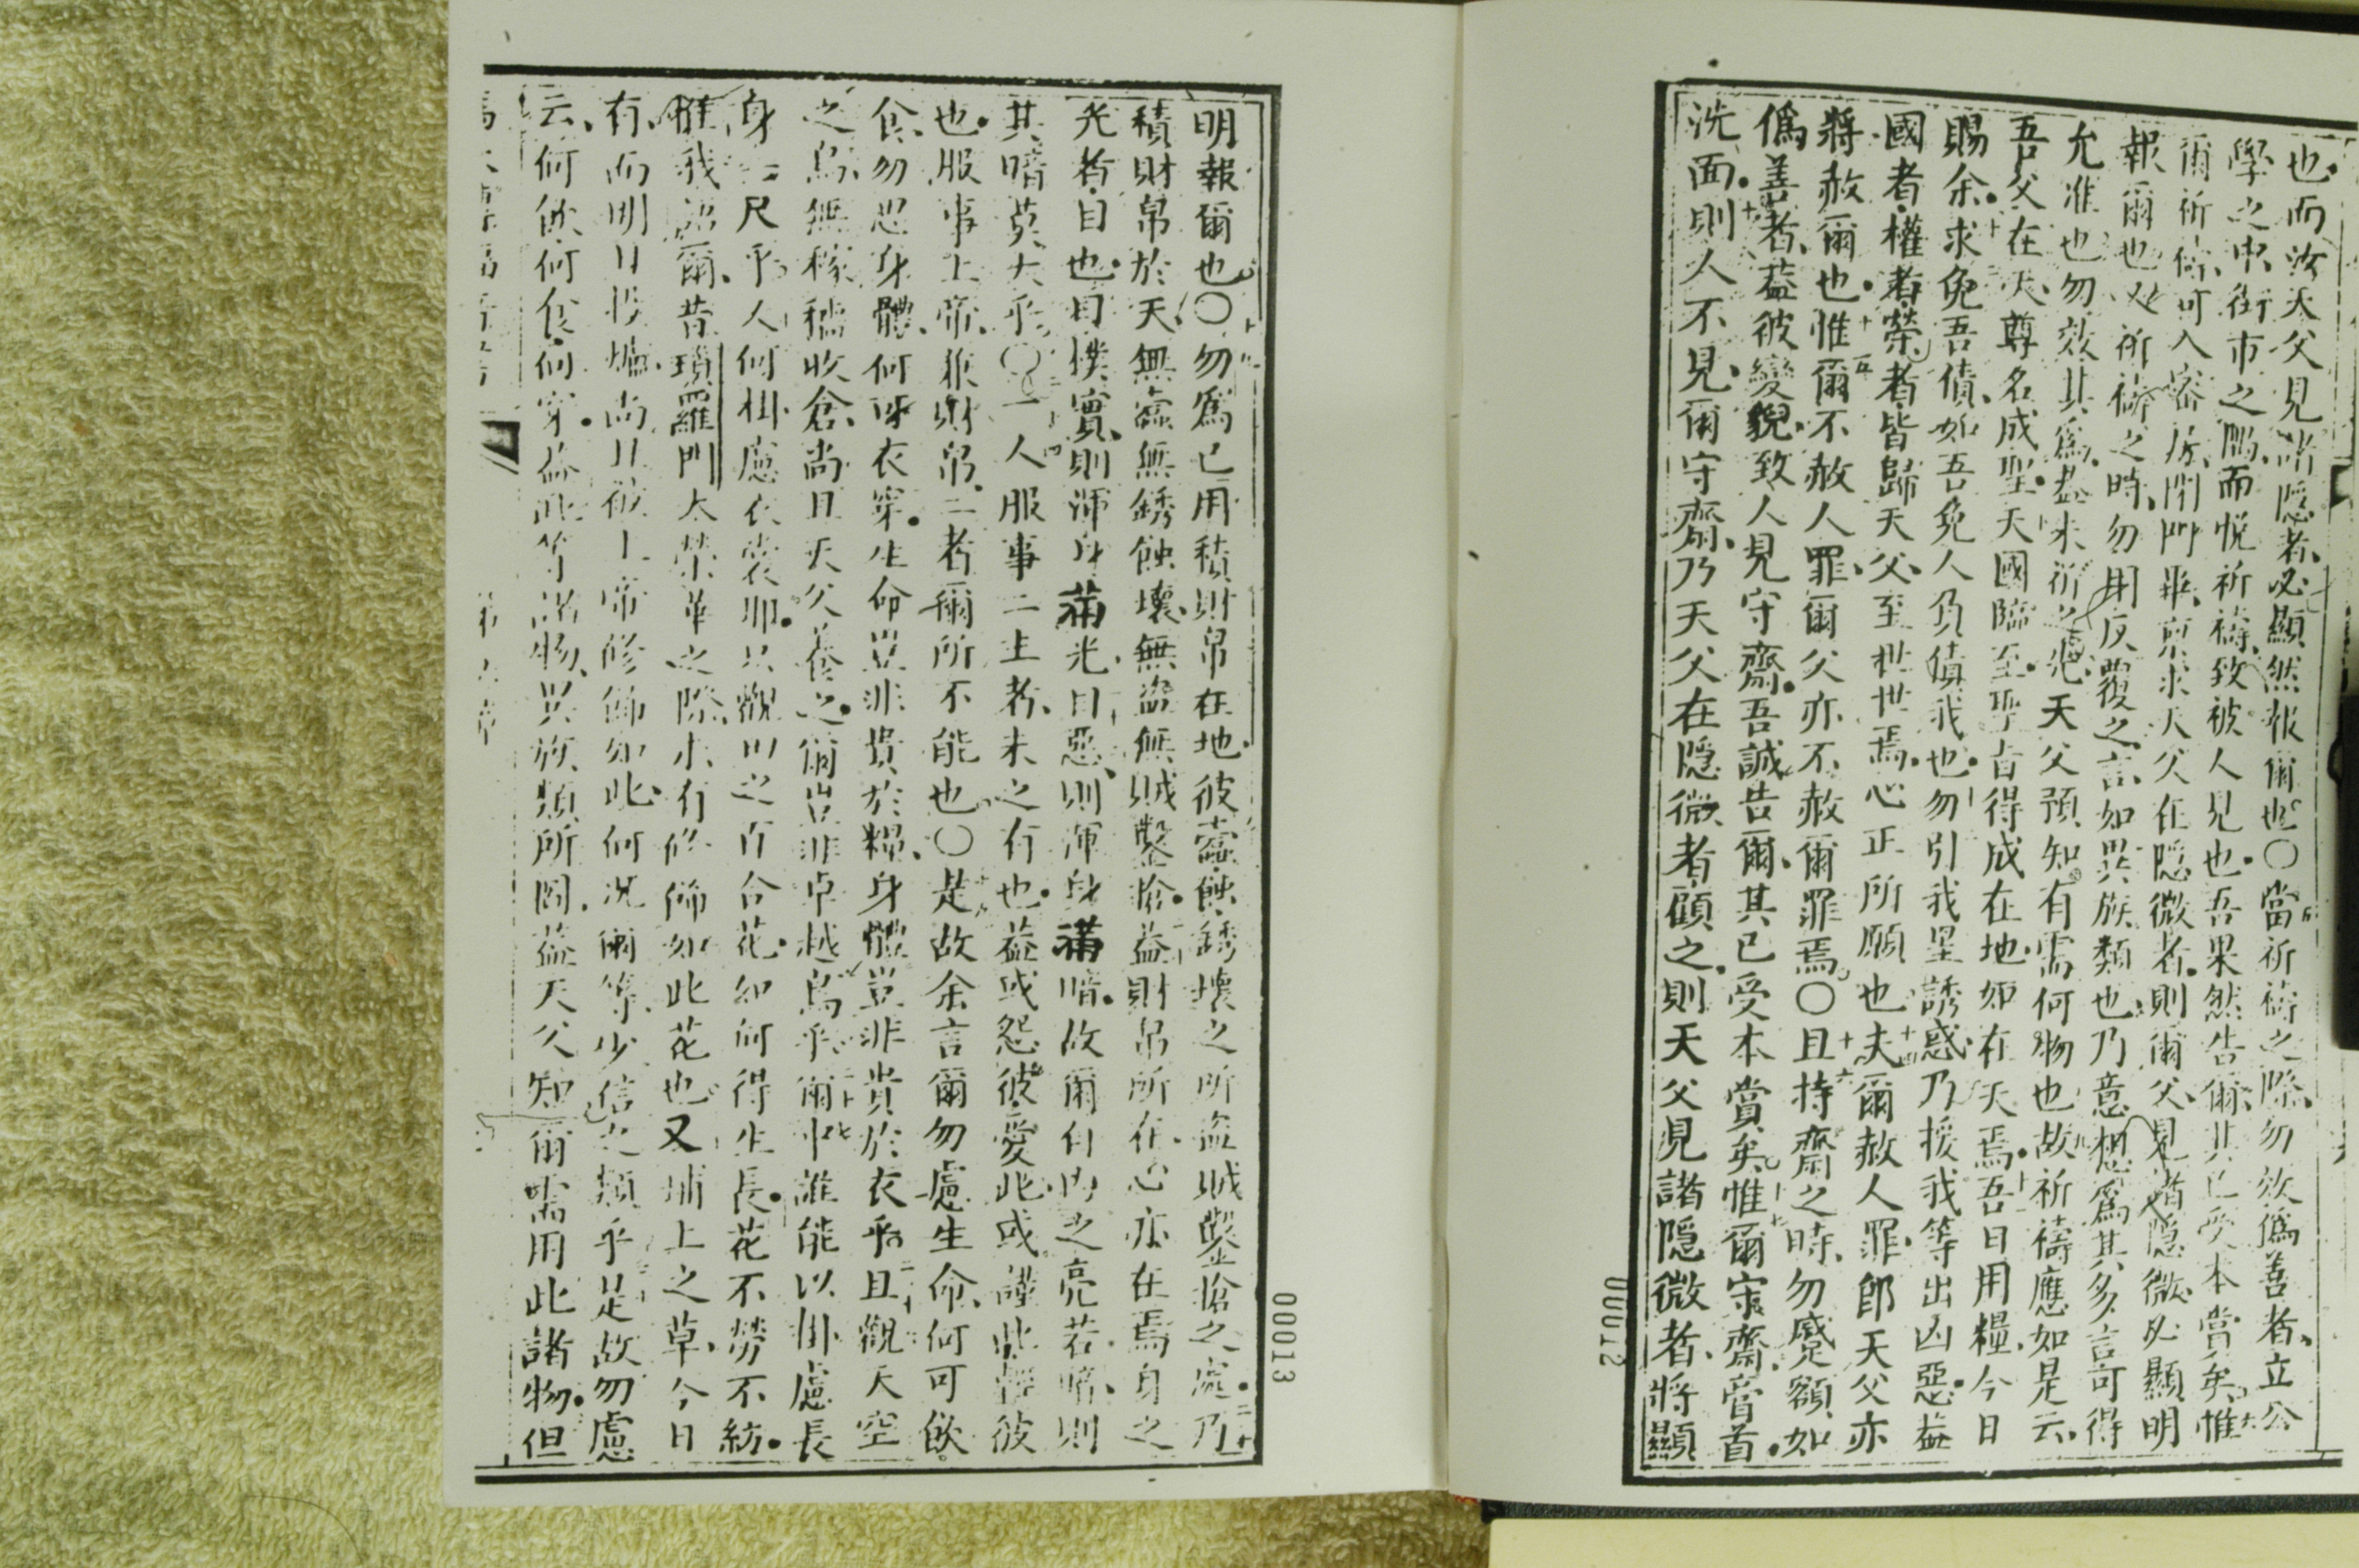 也而汝天父見諸隱者必顯然報爾也○當祈禱之際勿效偽善者立公
學之中街市之隅而悅祈禱致被人見也吾果然告爾其已受本賞矣惟
爾祈禱可入密房閉門畢求天父在隱微者則爾父見諸隱微必顯明
報爾也又祈禱之時勿用反覆之言如異族類也乃意想為其多言可得
允准也勿效其為蓋未祈之先天父預知有需何物也故祈禱應如是云
吾父在天尊名成聖天國臨至聖旨得成在地如在天焉吾日用糧今日
賜余求免吾債如吾免人負債我也勿引我至誘惑乃援我等出凶惡蓋
國者權者榮者皆歸天父至世世焉心正所願也夫爾赦人罪即天父亦
將赦爾也惟爾不赦人罪爾父亦不赦爾罪焉○且持齋之時勿蹙額如
偽善者蓋彼變貌致人見守齋吾誠告爾其已受本賞矣惟爾守齋膏首
洗面則人不見爾守齋乃天父在隱微者顧之則天父見諸隱微者將顯
00012
明報爾也○勿為己用積財帛在地彼蠹蝕銹壞之所盜賊鑿搶之處乃
積財帛於天無蠹無銹蝕壞無盜無賊鑿搶蓋財帛所在心亦在焉身之
光者目也目樸實則渾身滿光目惡則渾身滿暗故爾自內之亮若暗則
其暗莫大乎○一人服事二主者未之有也蓋或怨彼愛此或謹此輕彼
也服事上帝兼財帛二者爾所不能也○是故余言爾勿慮生命何可飲
食勿思身體何以衣穿生命豈非貴於糧身體豈非貴於衣乎且觀天空
之鳥無稼穡收倉尚且天父養之爾豈非卓越鳥乎爾中誰能以掛慮長
身一尺乎人何掛慮衣裳耶且觀田之百合花如何得生長花不勞不紡
惟我語爾昔瑣羅門太榮華之際未有修飾如此花也又埔上之草今日
有而明日投爐尚且被上帝修飾如此何況爾等少信之類乎是故勿慮
云何飲何食何穿蓋此等諸物異族類所圖蓋天父知爾需用此諸物但
00013